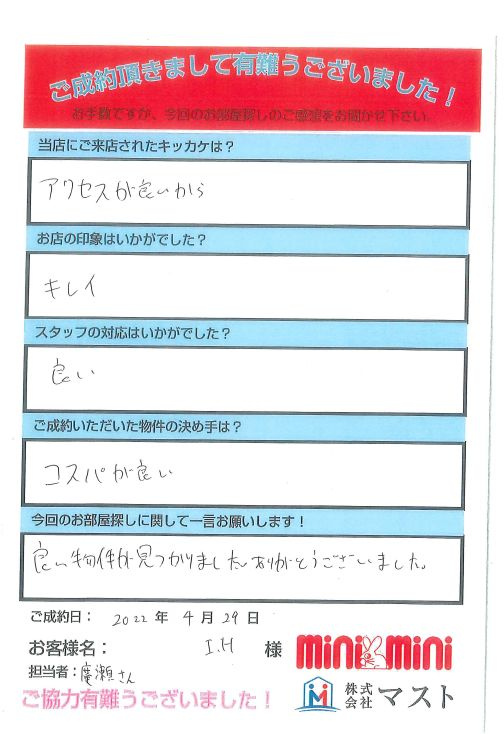 ご成約頂きまして有難うございました!
お手数ですが、今回のお部屋探しのご感想をお聞かせ下さい。
当店にご来店されたキッカケは?
アクセスが良いから
お店の印象はいかがでした?
キレイ
スタッフの対応はいかがでした?
良い
ご成約いただいた物件の決め手は?
コスパが良い
今回のお部屋探しに関して一言お願いします!
良い物件が見つかりました。ありがとうございました。
ご成約日: 2022 年 4 月 29 日
お客様名: I.H 様
mini mini
担当者:廣瀬さん
株式会社 マスト
ご協力有難うございました!